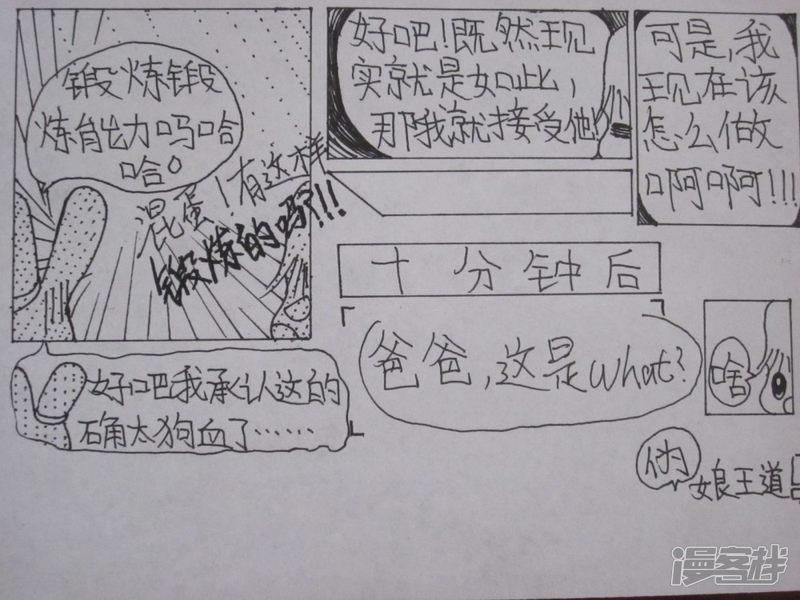 锻炼锻
炼能力吗哈
哈。
混蛋！有这样
锻炼的吗?!!!
好吧我承认这的
确太狗血了……
好吧!既然现
实就是如此，
那我就接受他!
可是,我
现在该
怎么做
啊啊!!!
十分钟后
爸爸,这是what?
啥
伪
娘王道
漫客栈